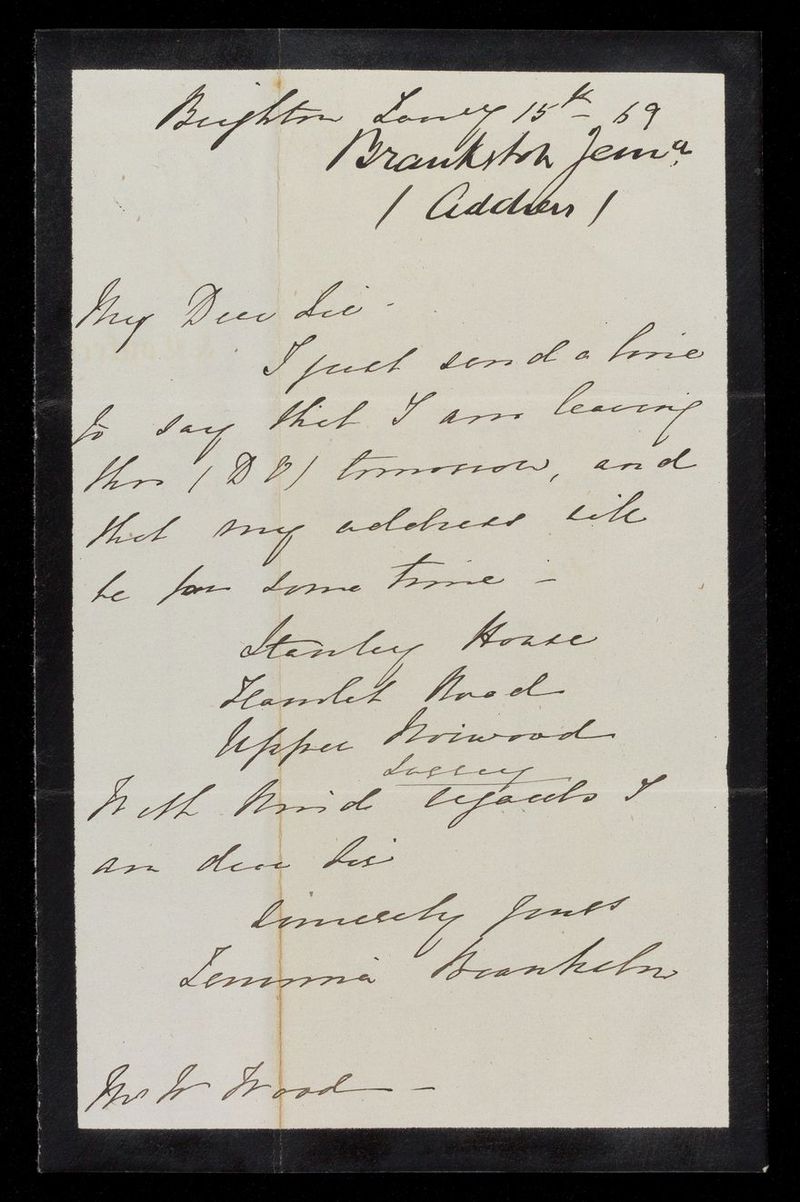 Brighton Jany 15th - 69
Brankston Jema.
/ Address /
My Dear Sir -
I just send a line
to say that I am leaving
this (D V) tomorrow, and
that my address will
be for some time -
Stanley House
Hamlet Road
Upper Norwood
Surrey
With kind regards I
am dear Sir
Sincerely yours
Jemima Brankston
Mr W Wood -